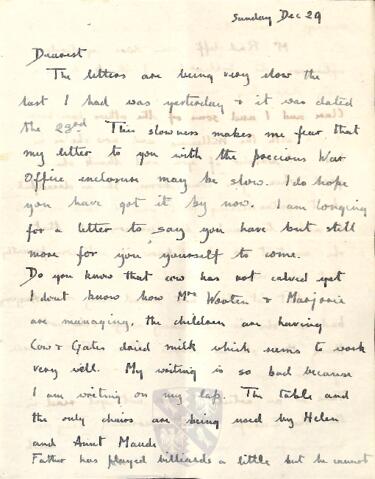 Sunday Dec 29
Dearest
The letters are being very slow the
last I had was yesterday & it was dated
the 23rd This slowness makes me fear that
my letter to you with the precious War
Office enclosure may be slow. I do hope
you have got it by now. I am longing
for a letter to say you have but still
more for you yourself to come.
Do you know that cow has not calved yet
I dont know how Mrs Wooten & Marjorie
are managing, the children are having
Cow & Gates dried milk which seems to work
very well. My writing is so bad because
I am writing on my lap. The table and
the only chairs are being used by Helen
and Aunt Maude
Father has played billiards a little but he cannot